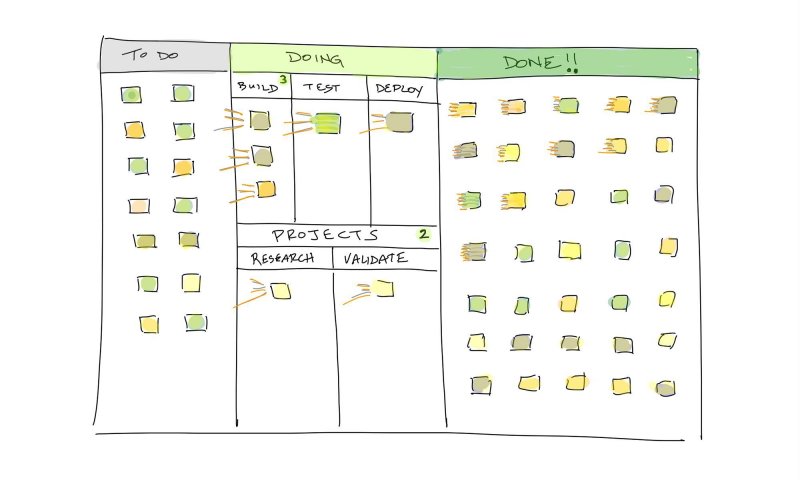 TO DO
DOING
DONE!!
BUILD 3
TEST
DEPLOY
PROJECTS 2
RESEARCH
VALIDATE